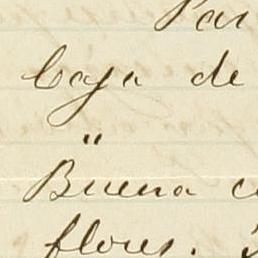 Par
Caja de
"
Buena c
flores.